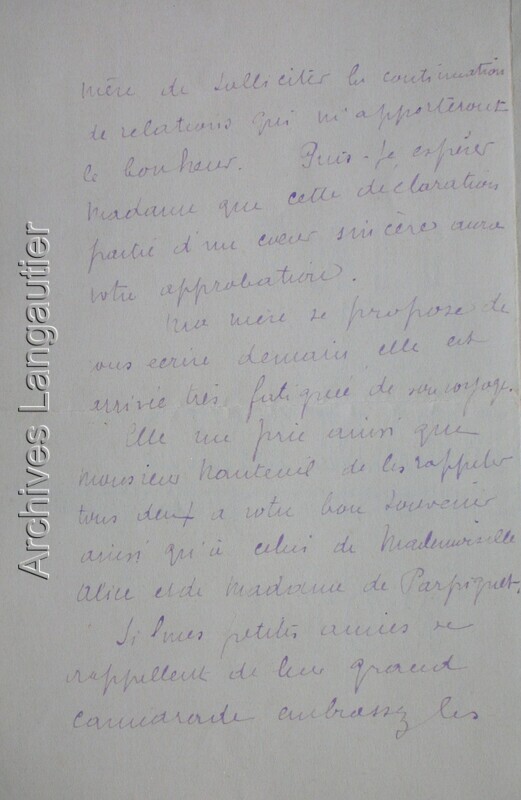 mère de solliciter la continuation
de relations qui m'apporteront
le bonheur. Puis-je espérer
Madame que cette déclaration
partie d'un coeur sincère aura
votre approbation.
Ma mère se propose de
vous écrire demain, elle est
arrivée très fatiguée de son voyage.
Elle me prie ainsi que
monsieur Nanteuil de les rappeler
tous deux a votre bon souvenir
ainsi qu'à celui de Mademoiselle
Alice et de Madame de Parpiquet.
Si mes petites amies se
rappellent de leur grand
camarade embrassez les
Archives Langautier